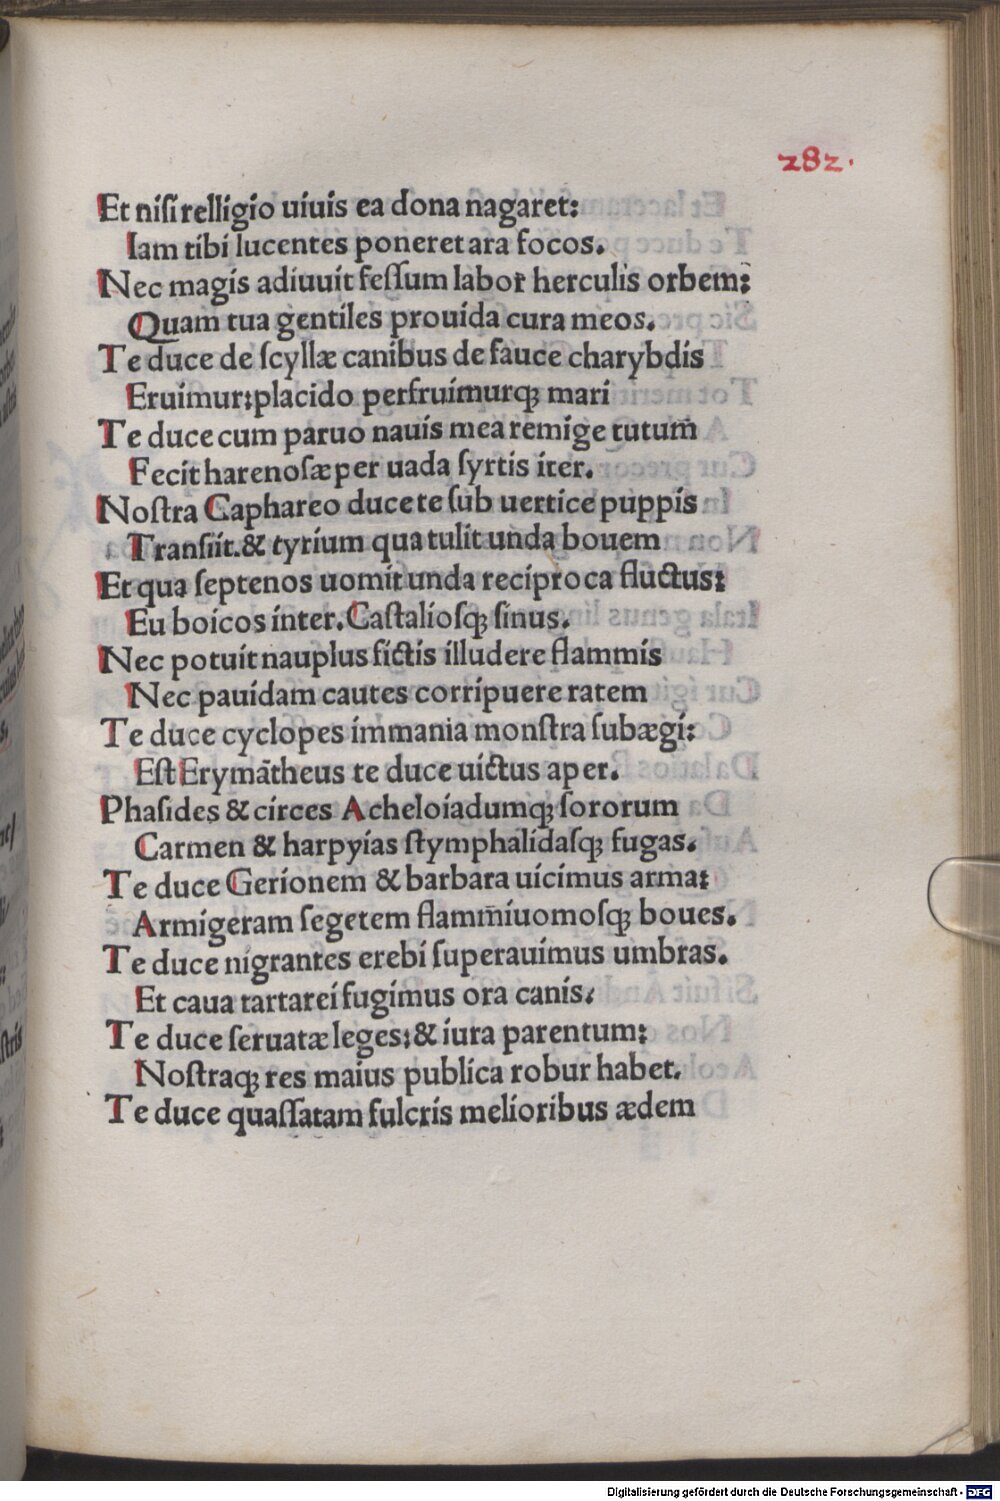 282.
Et niſi relligio uiuis ea dona nagaret:
Iam tibi lucentes poneret ara focos.
Nec magis adiuuit feſſum labor herculis orbem:
Quam tua gentiles prouida cura meos.
Te duce de ſcyllæ canibus de fauce charybdis
Eruimur: placido perfruimurqꝫ mari
Te duce cum paruo nauis mea remige tutum̄
Fecit harenoſæ per uada ſyrtis iter.
Noſtra Caphareo duce te ſub uertice puppis
Tranſiit. & tyrium qua tulit unda bouem
Et qua ſeptenos uomit unda reciproca fluctus:
Eu boicos inter. Caſtalioſqꝫ ſinus.
Nec potuit nauplus fictis illudere flammis
Nec pauidam cautes corripuere ratem
Te duce cyclopes immania monſtra ſubægi:
Eſt Erymātheus te duce uictus aper.
Phaſides & circes Acheloiadumqꝫ ſororum
Carmen & harpyias ſtymphalidaſqꝫ fugas.
Te duce Gerionem & barbara uicimus arma:
Armigeram ſegetem flamm̄iuomoſqꝫ boues.
Te duce nigrantes erebi ſuperauimus umbras.
Et caua tartarei fugimus ora canis:
Te duce ſeruatæ leges: & iura parentum:
Noſtraqꝫ res maius publica robur habet.
Te duce quaſſatam fulcris melioribus ædem
Digitalisierung gefördert durch die Deutsche Forschungsgemeinschaft - DFG